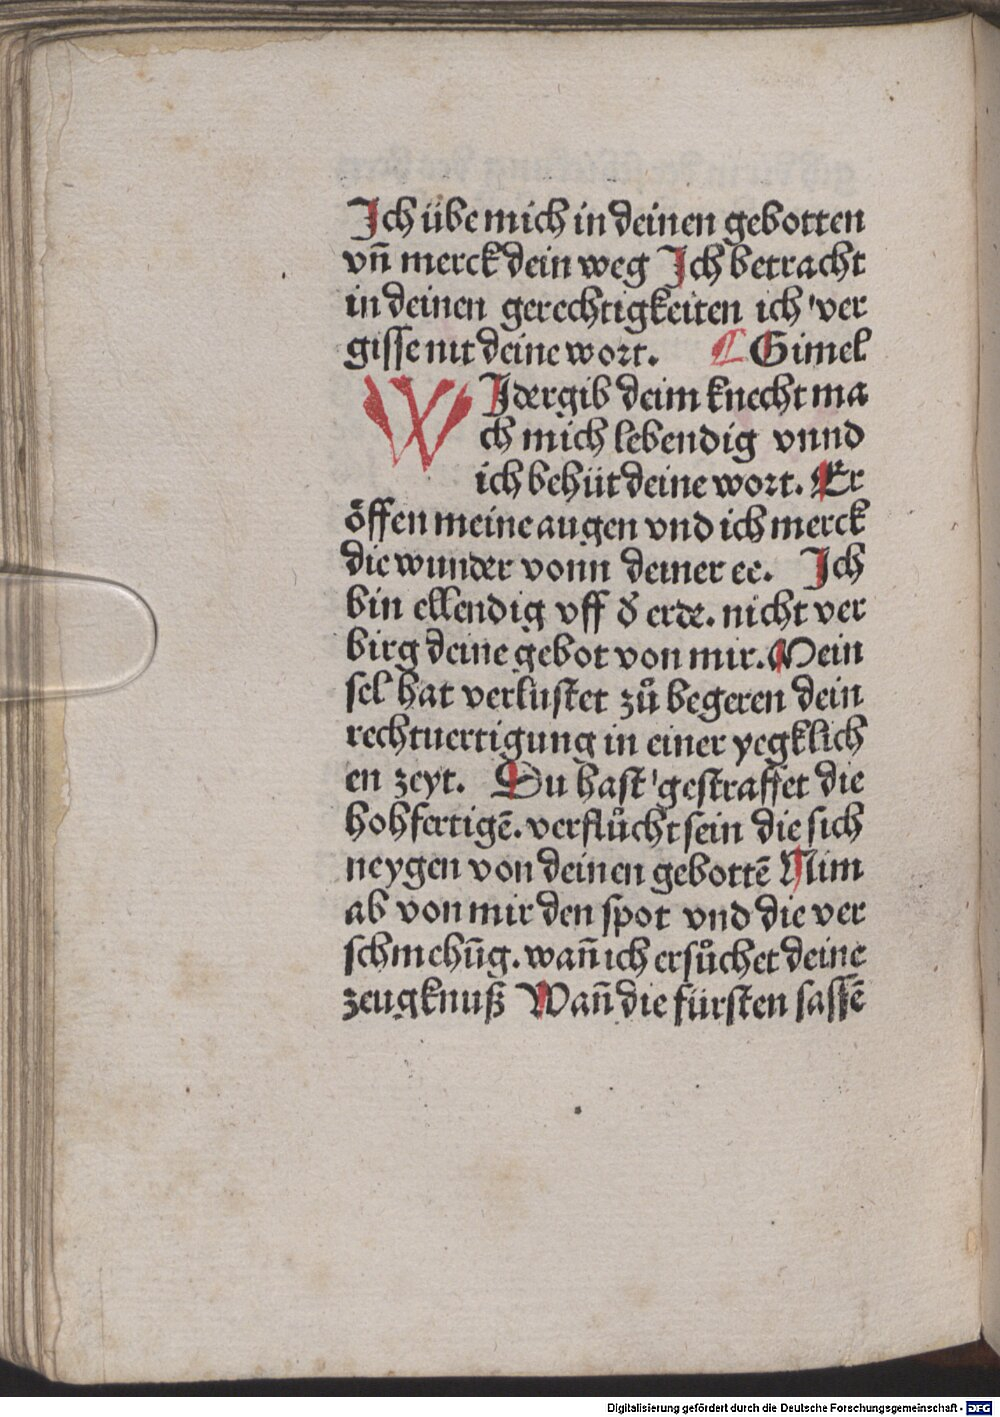 Ich übe mich in deinen gebotten
vn̄ merck dein weg Ich betracht
in deinen gerechtigkeiten ich ver
gisse nit deine wort. ⸿ Gimel
WIdergib deim knecht ma
ch mich lebendig vnnd
ich behüt deine wort. Er
öffen meine augen vnd ich merck
die wunder vonn deiner ee. Ich
bin ellendig vff d̕ erde. nicht ver
birg deine gebot von mir. Mein
sel hat verlustet zů begeren dein
rechtuertigung in einer yegklich
en zeyt. Du hast gestraffet die
hohfertigē. verflůcht sein die sich
neygen von deinen gebottē Nim
ab von mir den spot vnd die ver
schmehūg. wan̄ ich ersůchet deine
zeugknuß Wan̄ die fürsten sassē
Digitalisierung gefördert durch die Deutsche Forschungsgemeinschaft - DFG